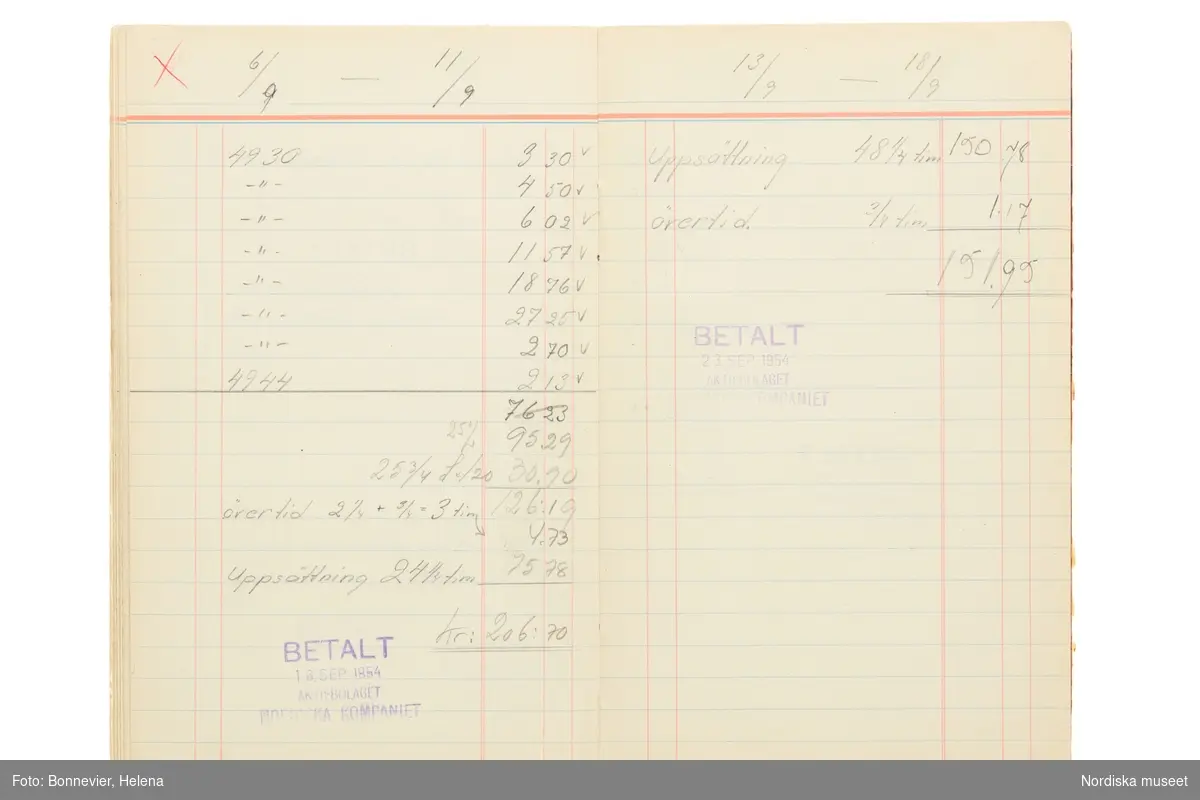 6/9 — 11/9
4930 3 30 v
-"- 4 50 v
-"- 6 02 v
-"- 11 57 v
-"- 18 76 v
-"- 27 25 v
-"- 2 70 v
4944 2 13 v
76 23
25% 95 29
25 3/4 30.90
126:19
övertid 2 1/4 + 3/4 = 3 tim
4.73
Uppsättning 24 1/4 tim 75 78
kr: 206:70
BETALT
SEP 1954
AKTIEBOLAGET
NORDISKA KOMPANIET
13/9 — 18/9
Uppsättning 48 1/4 tim 150.78
övertid tim 1.17
151.95
BETALT
23 SEP 1954
AKTIEBOLAGET
KOMPANIET
Foto: Bonnevier, Helena
Nordiska museet